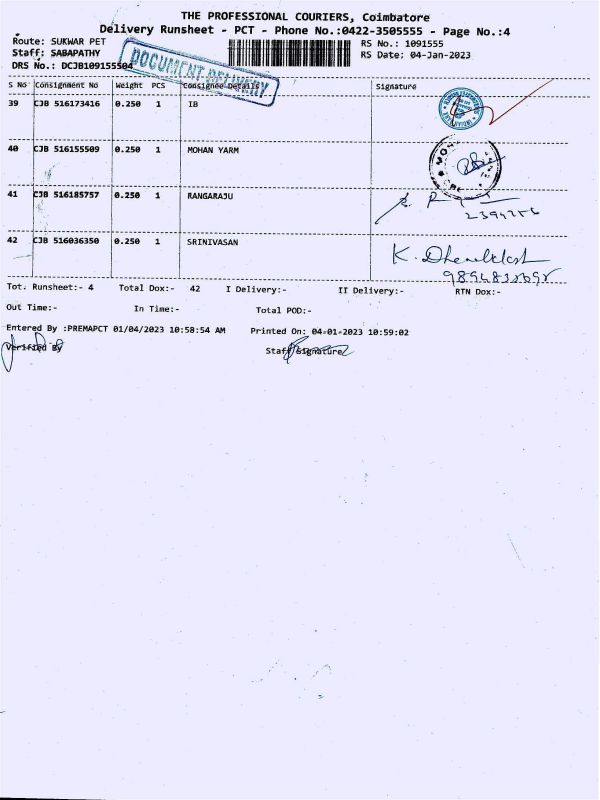 THE PROFESSIONAL COURIERS, Coimbatore
Delivery Runsheet - PCT - Phone No.:0422-3505555 - Page No.:4
Route: SUKWAR PET RS No.: 1091555
Staff: SABAPATHY RS Date: 04-Jan-2023
DRS No.: DCJB109155504
DOCUMENT DELIVERY
S No Consignment No Weight PCS Consignee Details Signature
39 CJB 516173416 0.250 1 IB
40 CJB 516155509 0.250 1 MOHAN YARM
41 CJB 516185757 0.250 1 RANGARAJU
42 CJB 516036350 0.250 1 SRINIVASAN
Tot. Runsheet:- 4 Total Dox:- 42 I Delivery:- II Delivery:- RTN Dox:-
Out Time:- In Time:- Total POD:-
Entered By :PREMAPCT 01/04/2023 10:58:54 AM Printed On: 04-01-2023 10:59:02
Verified By Staff Signature